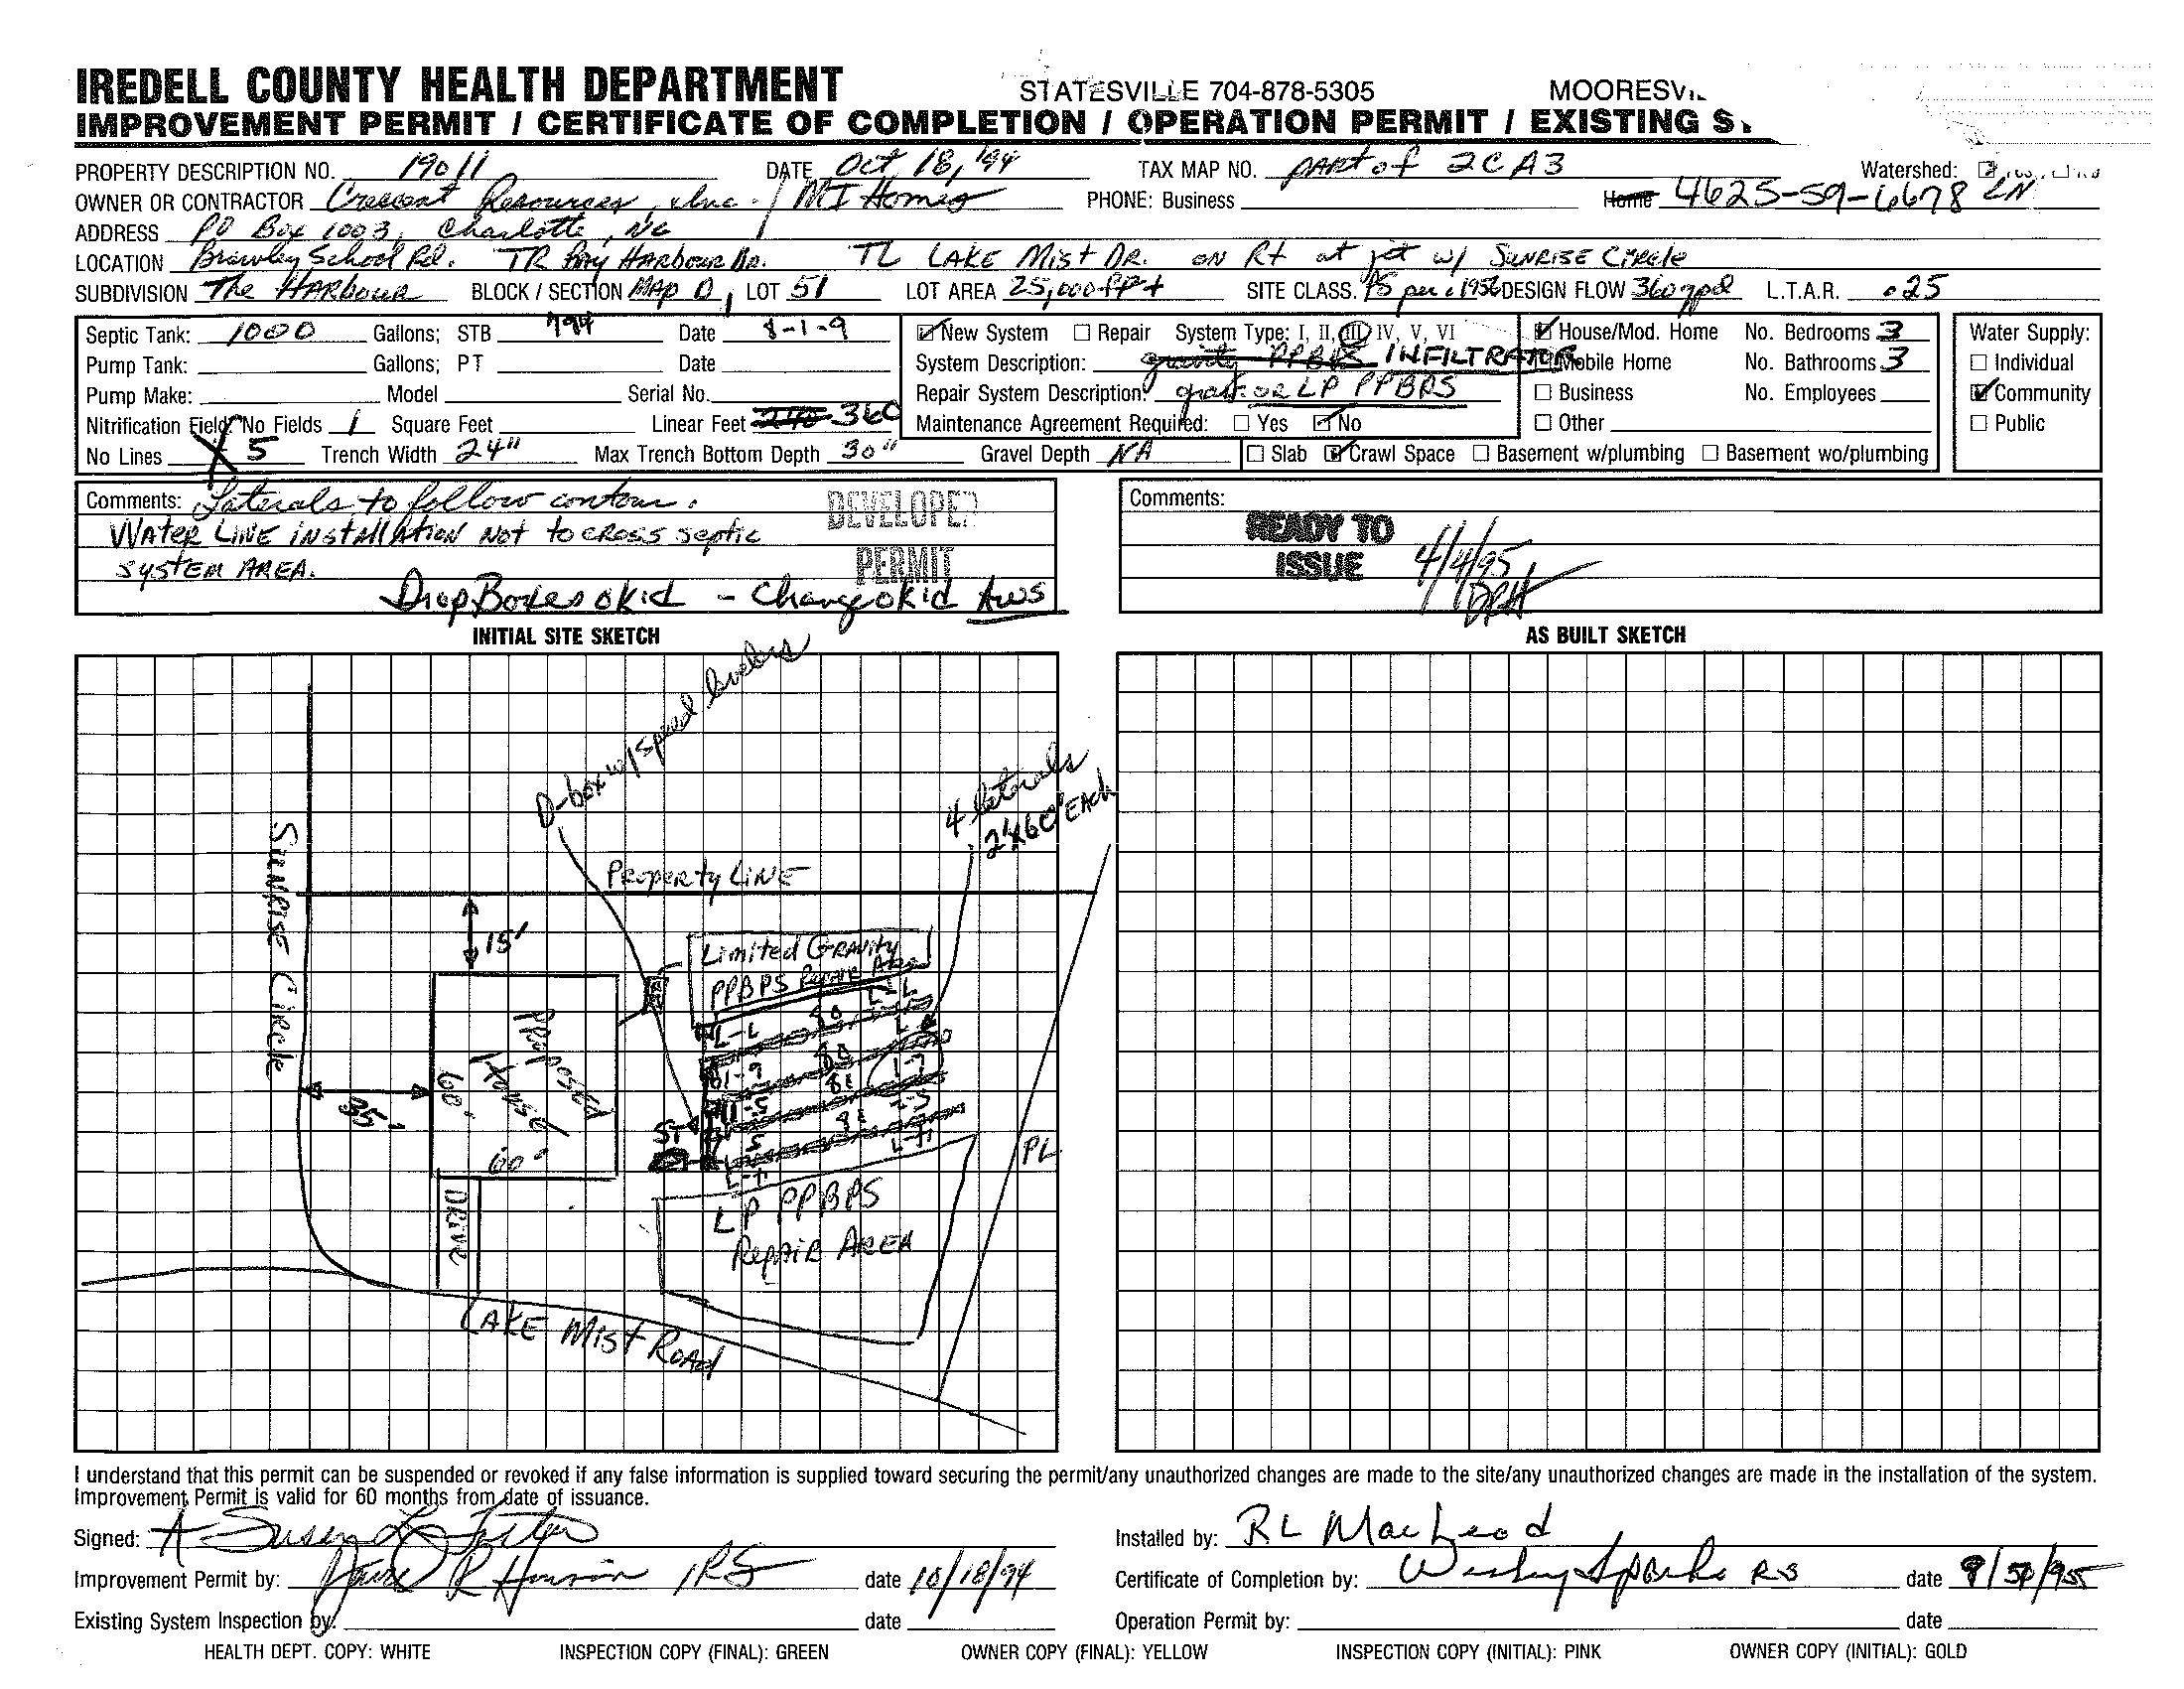 IREDELL COUNTY HEALTH DEPARTMENT STATESVILLE 704-878-5305 MOORESV
IMPROVEMENT PERMIT / CERTIFICATE OF COMPLETION / OPERATION PERMIT / EXISTING S
PROPERTY DESCRIPTION NO. 19011 DATE Oct 18, '94 TAX MAP NO. part of 2CA3 Watershed:
OWNER OR CONTRACTOR Crescent Resources, Inc. / MI Homes PHONE: Business Home 4625-59-6678 LN
ADDRESS PO Box 1003, Charlotte, NC
LOCATION Brawley School Rd. TR Bay Harbour Dr. TL LAKE Mist DR. on Rt at jct w/ Sunrise Circle
SUBDIVISION The Harbour BLOCK / SECTION Map D, LOT 51 LOT AREA 25,000 SITE CLASS. PS per .1956 DESIGN FLOW 360 gpd L.T.A.R. .25
Septic Tank: 1000 Gallons; STB 794 Date 8-1-9
Pump Tank: Gallons; PT Date
Pump Make: Model Serial No.
Nitrification Field: No Fields 1 Square Feet Linear Feet 240 360
No Lines 5 Trench Width 24" Max Trench Bottom Depth 30" Gravel Depth NA
New System Repair System Type: I, II, III, IV, V, VI
System Description: gravity PPBPS INFILTRATOR
Repair System Description: grav. or LP PPBPS
Maintenance Agreement Required: Yes No
House/Mod. Home No. Bedrooms 3
Mobile Home No. Bathrooms 3
Business No. Employees
Other
Slab Crawl Space Basement w/plumbing Basement wo/plumbing
Water Supply:
Individual
Community
Public
Comments: Laterals to follow contour.
Water Line installation not to cross septic
system area.
DEVELOPER
PERMIT
Drop Boxes okid - Change okid AWS
Comments:
READY TO
ISSUE 4/4/95
INITIAL SITE SKETCH
D-box w/ speed levelers
4 laterals
2'x60' EACH
Property Line
Sunrise Circle
15'
Limited Gravity
PPBPS Repair Area
Proposed
House
60'
60'
35'
ST
PL
Drive
LP PPBPS
Repair Area
LAKE Mist Road
AS BUILT SKETCH
I understand that this permit can be suspended or revoked if any false information is supplied toward securing the permit/any unauthorized changes are made to the site/any unauthorized changes are made in the installation of the system.
Improvement Permit is valid for 60 months from date of issuance.
Signed: Susan L
Improvement Permit by: R RS date 10/18/94
Existing System Inspection by: date
Installed by: RL MacLeod
Certificate of Completion by: Wesley Sparks RS date
Operation Permit by: date
HEALTH DEPT. COPY: WHITE INSPECTION COPY (FINAL): GREEN OWNER COPY (FINAL): YELLOW INSPECTION COPY (INITIAL): PINK OWNER COPY (INITIAL): GOLD